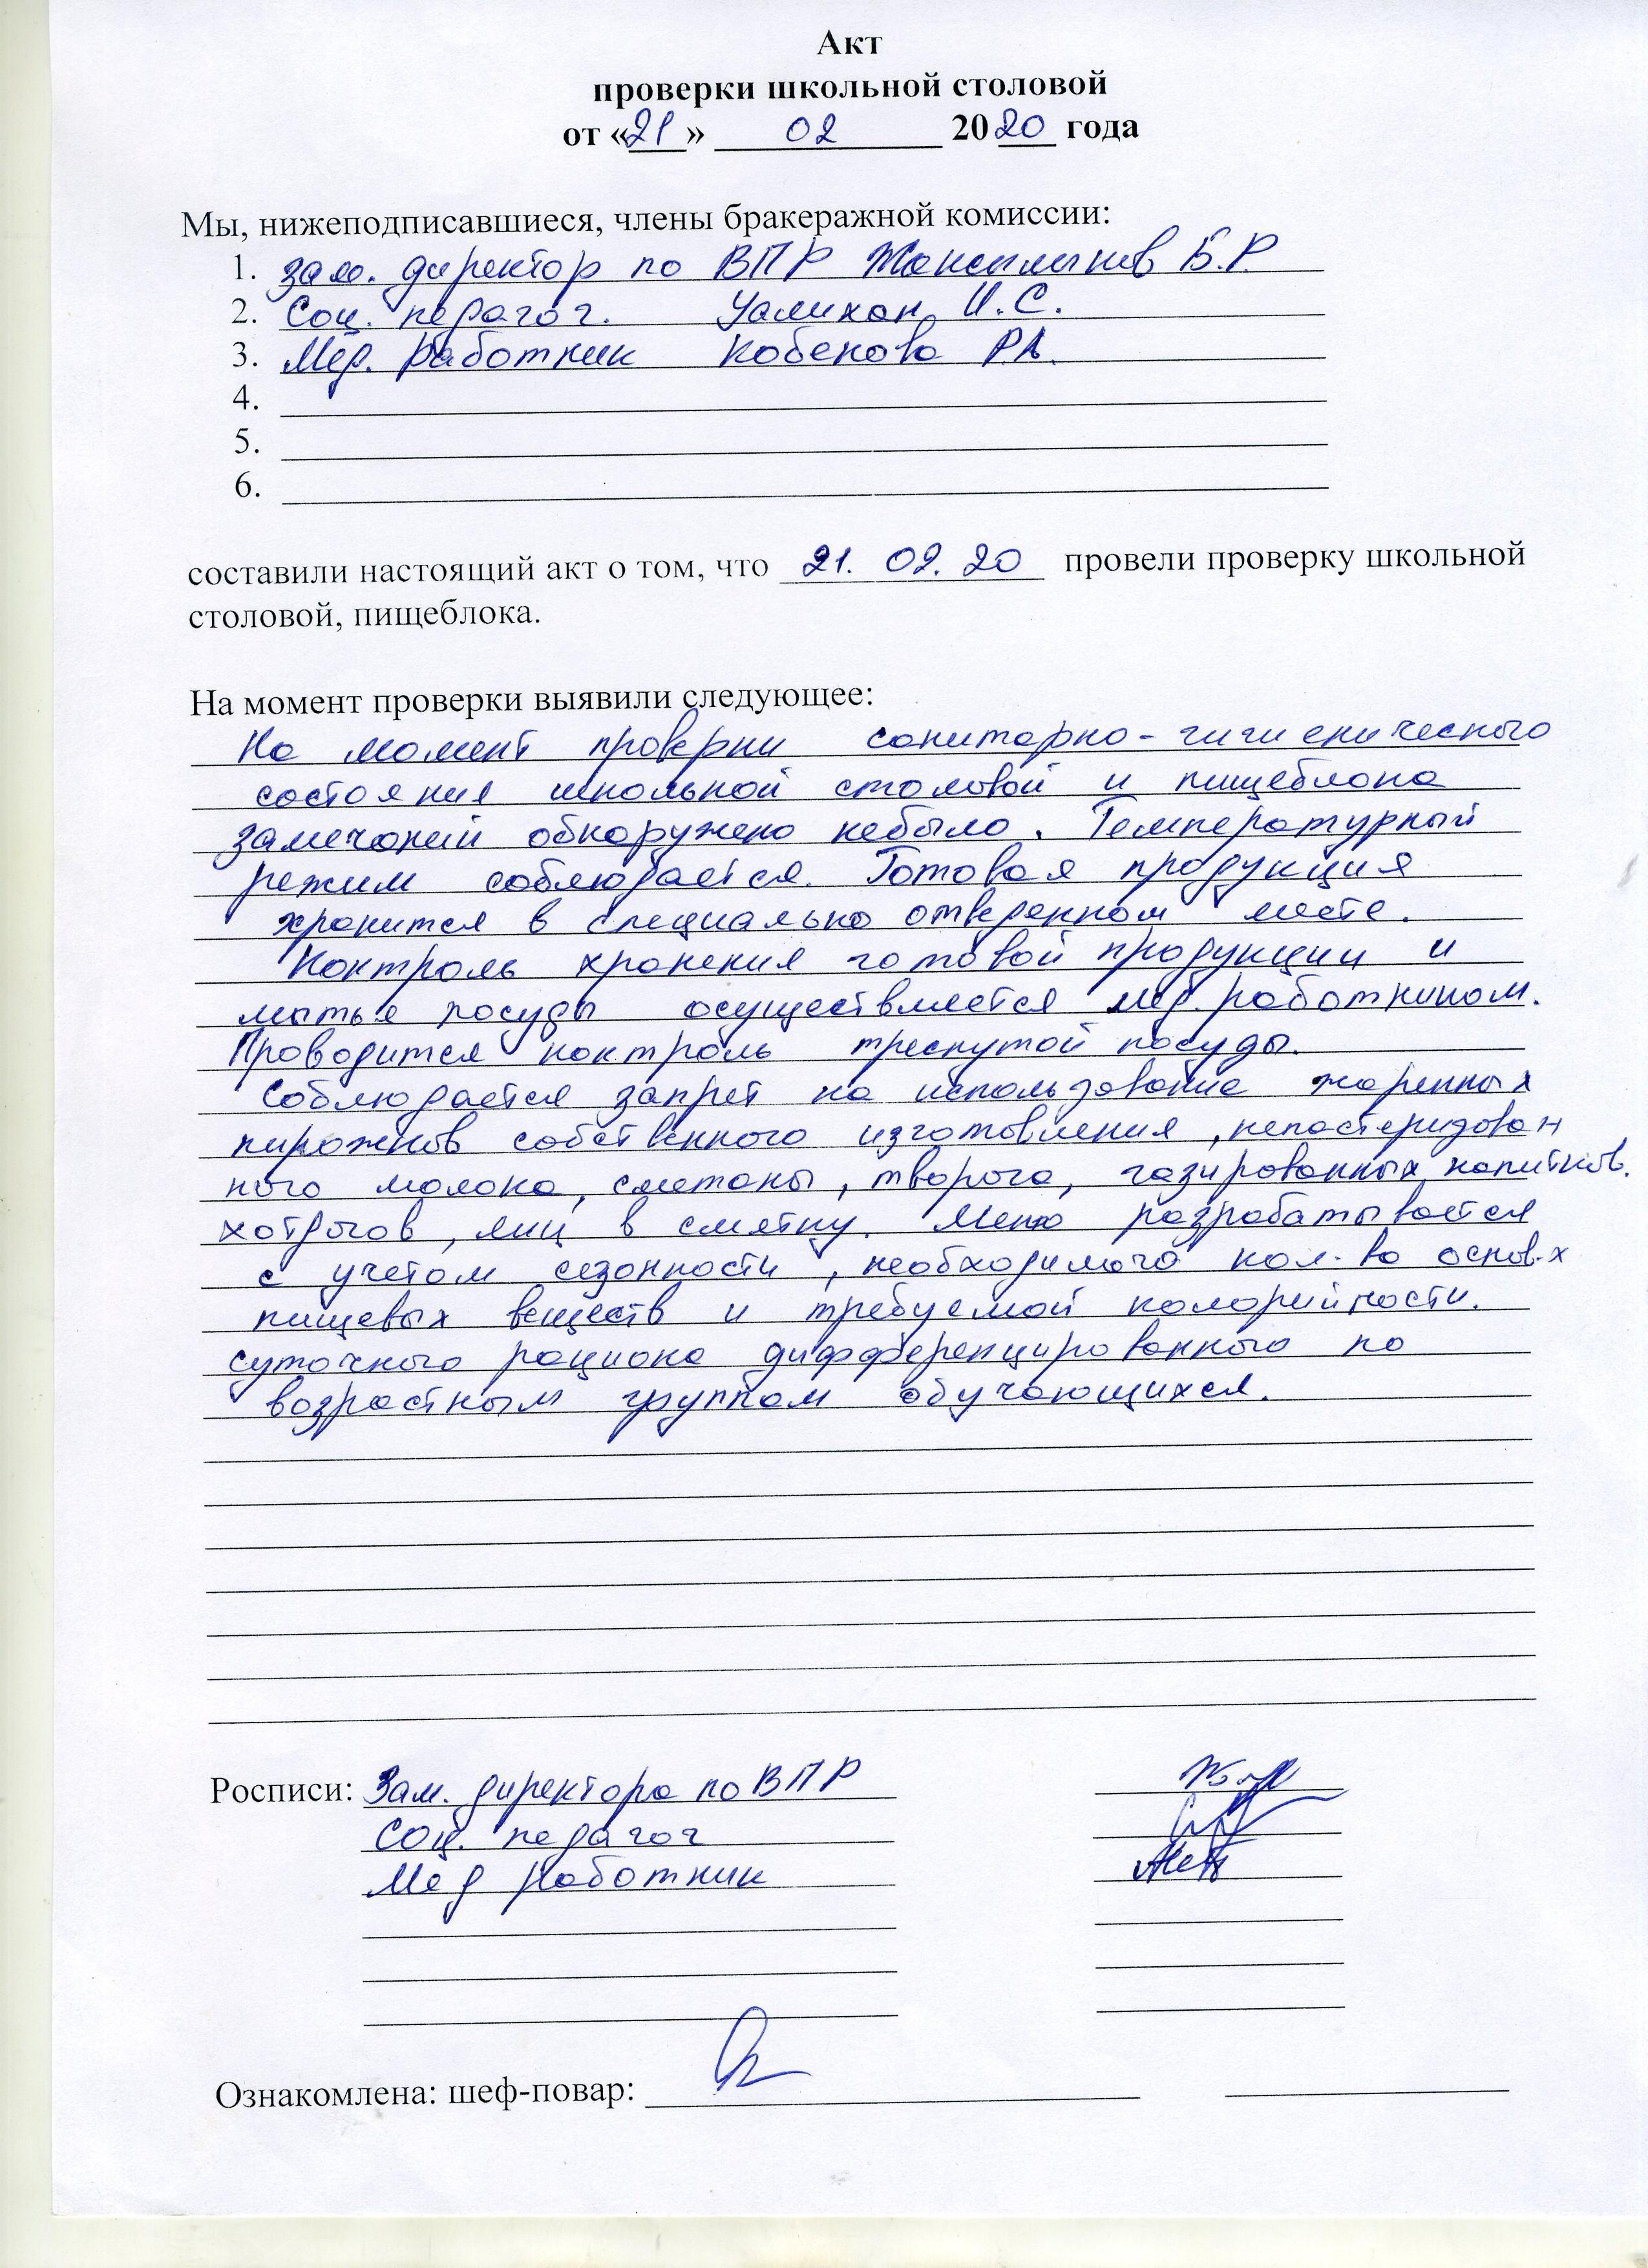 Акт
проверки школьной столовой
от «21» 02 2020 года
Мы, нижеподписавшиеся, члены бракеражной комиссии:
1. зам. директор по ВПР Жаксылыков Б.Р.
2. Соц. педагог. Уалихан И.С.
3. Мед. работник Кобенова Р.А.
4.
5.
6.
составили настоящий акт о том, что 21. 02. 20 провели проверку школьной
столовой, пищеблока.
На момент проверки выявили следующее:
На момент проверки санитарно-гигиенического
состояния школьной столовой и пищеблока
замечаний обнаружено небыло. Температурный
режим соблюдается. Готовая продукция
хранится в специально отведенном месте.
Контроль хранения готовой продукции и
мытье посуды осуществляется мед. работником.
Проводится контроль треснутой посуды.
Соблюдается запрет на использование жаренных
пирожков собственного изготовления, непастеризован
ного молока, сметаны, творога, газированных напитков.
хотдогов, яиц в смятку. Меню разрабатывается
с учетом сезонности, необходимого кол-во основ-х
пищевых веществ и требуемой калорийности.
суточного рациона дифференцированного по
возрастным группам обучающихся.
Росписи: Зам. директора по ВПР
Соц. педагог
Мед работник
Ознакомлена: шеф-повар: